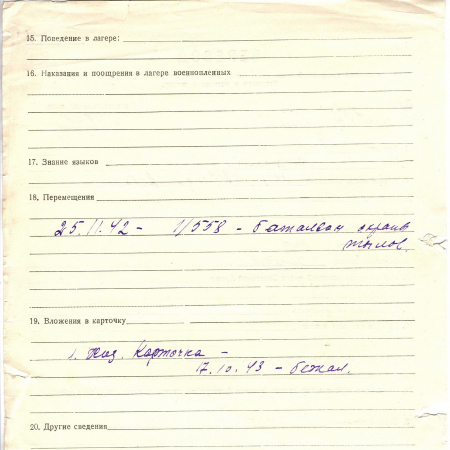 15. Поведение в лагере:
16. Наказания и поощрения в лагере военнопленных
17. Знание языков
18. Перемещения
25.11.42 - 1/558 - батальон охраны
тылов.
19. Вложения в карточку
1. Карточка -
17.10.43 - бежал.
20. Другие сведения